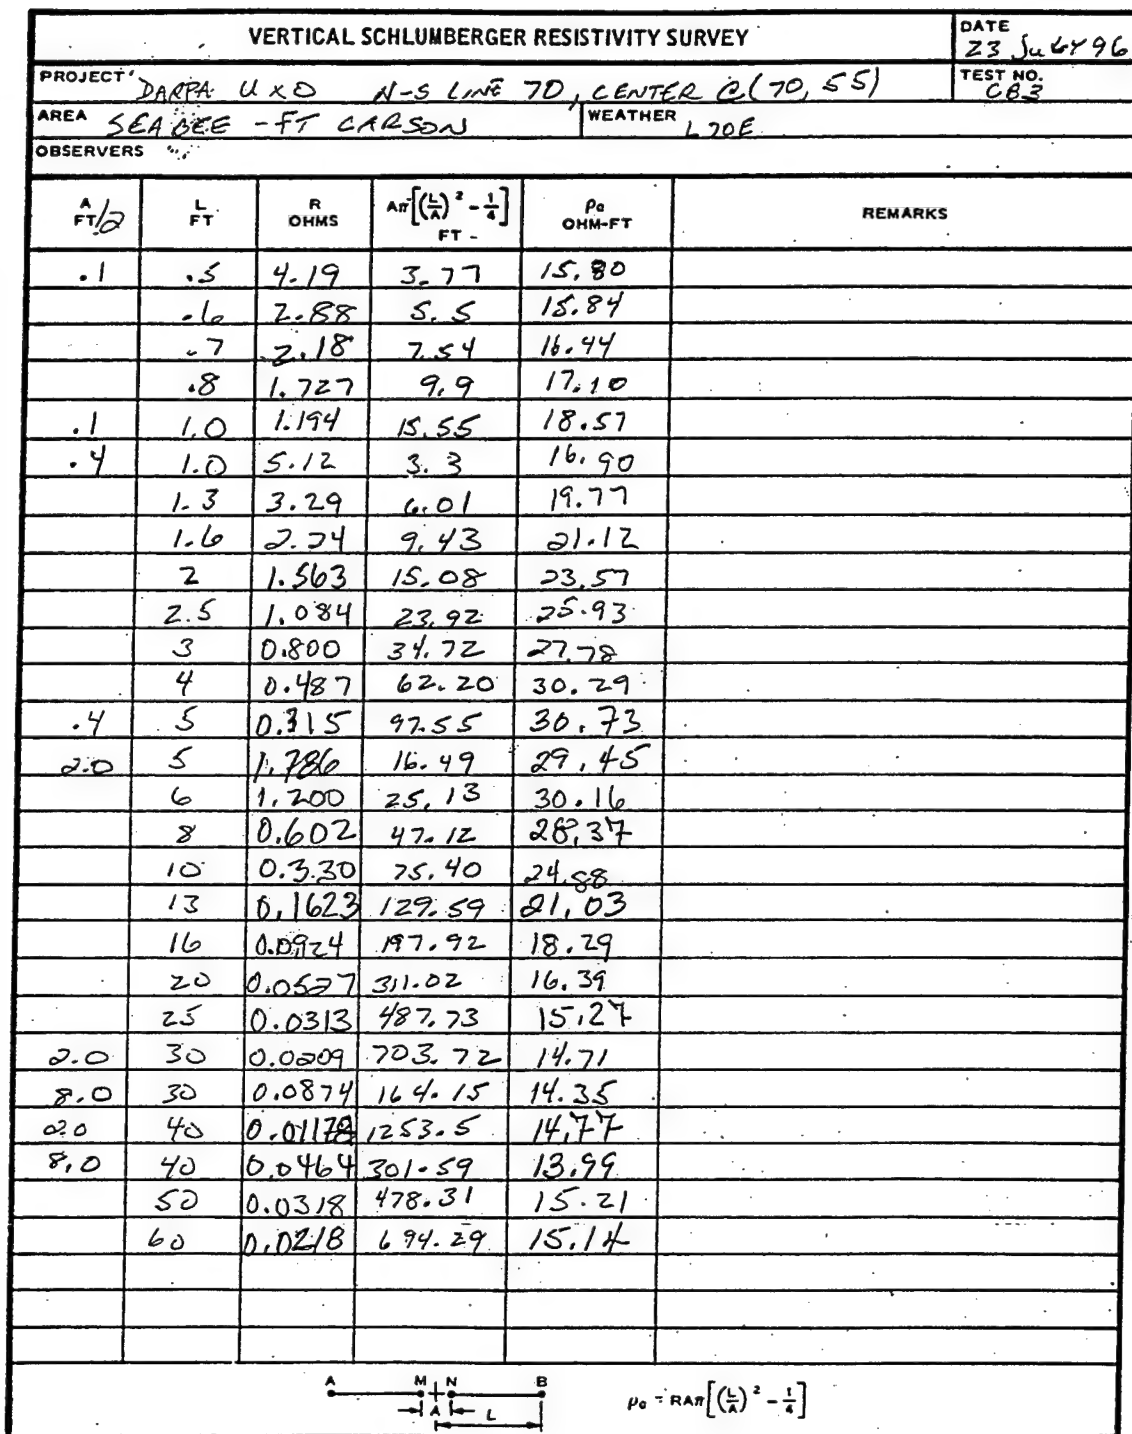 VERTICAL SCHLUMBERGER RESISTIVITY SURVEY
DATE
23 July 96
PROJECT DARPA UXO N-S LINE 70, CENTER @(70,55)
TEST NO. CB3
AREA SEABEE - FT CARSON
WEATHER 70E
OBSERVERS
A FT/2 L FT R OHMS Aπ[(L/A)² - 1/4] FT - ρa OHM-FT REMARKS
.1 .5 4.19 3.77 15.80
.6 2.88 5.5 15.84
.7 2.18 7.54 16.44
.8 1.727 9.9 17.10
.1 1.0 1.194 15.55 18.57
.4 1.0 5.12 3.3 16.90
1.3 3.29 6.01 19.77
1.6 2.24 9.43 21.12
2 1.563 15.08 23.57
2.5 1.084 23.92 25.93
3 0.800 34.72 27.78
4 0.487 62.20 30.29
.4 5 0.315 97.55 30.73
2.0 5 1.786 16.49 29.45
6 1.200 25.13 30.16
8 0.602 47.12 28.37
10 0.3.30 75.40 24.88
13 0.1623 129.59 21.03
16 0.0924 197.92 18.29
20 0.0527 311.02 16.39
25 0.0313 487.73 15.27
2.0 30 0.0209 703.72 14.71
8.0 30 0.0874 164.15 14.35
2.0 40 0.01178 1253.5 14.77
8.0 40 0.0464 301.59 13.99
50 0.0318 478.31 15.21
60 0.0218 694.29 15.14
A M N B
A L
ρa = RAπ[(L/A)² - 1/4]